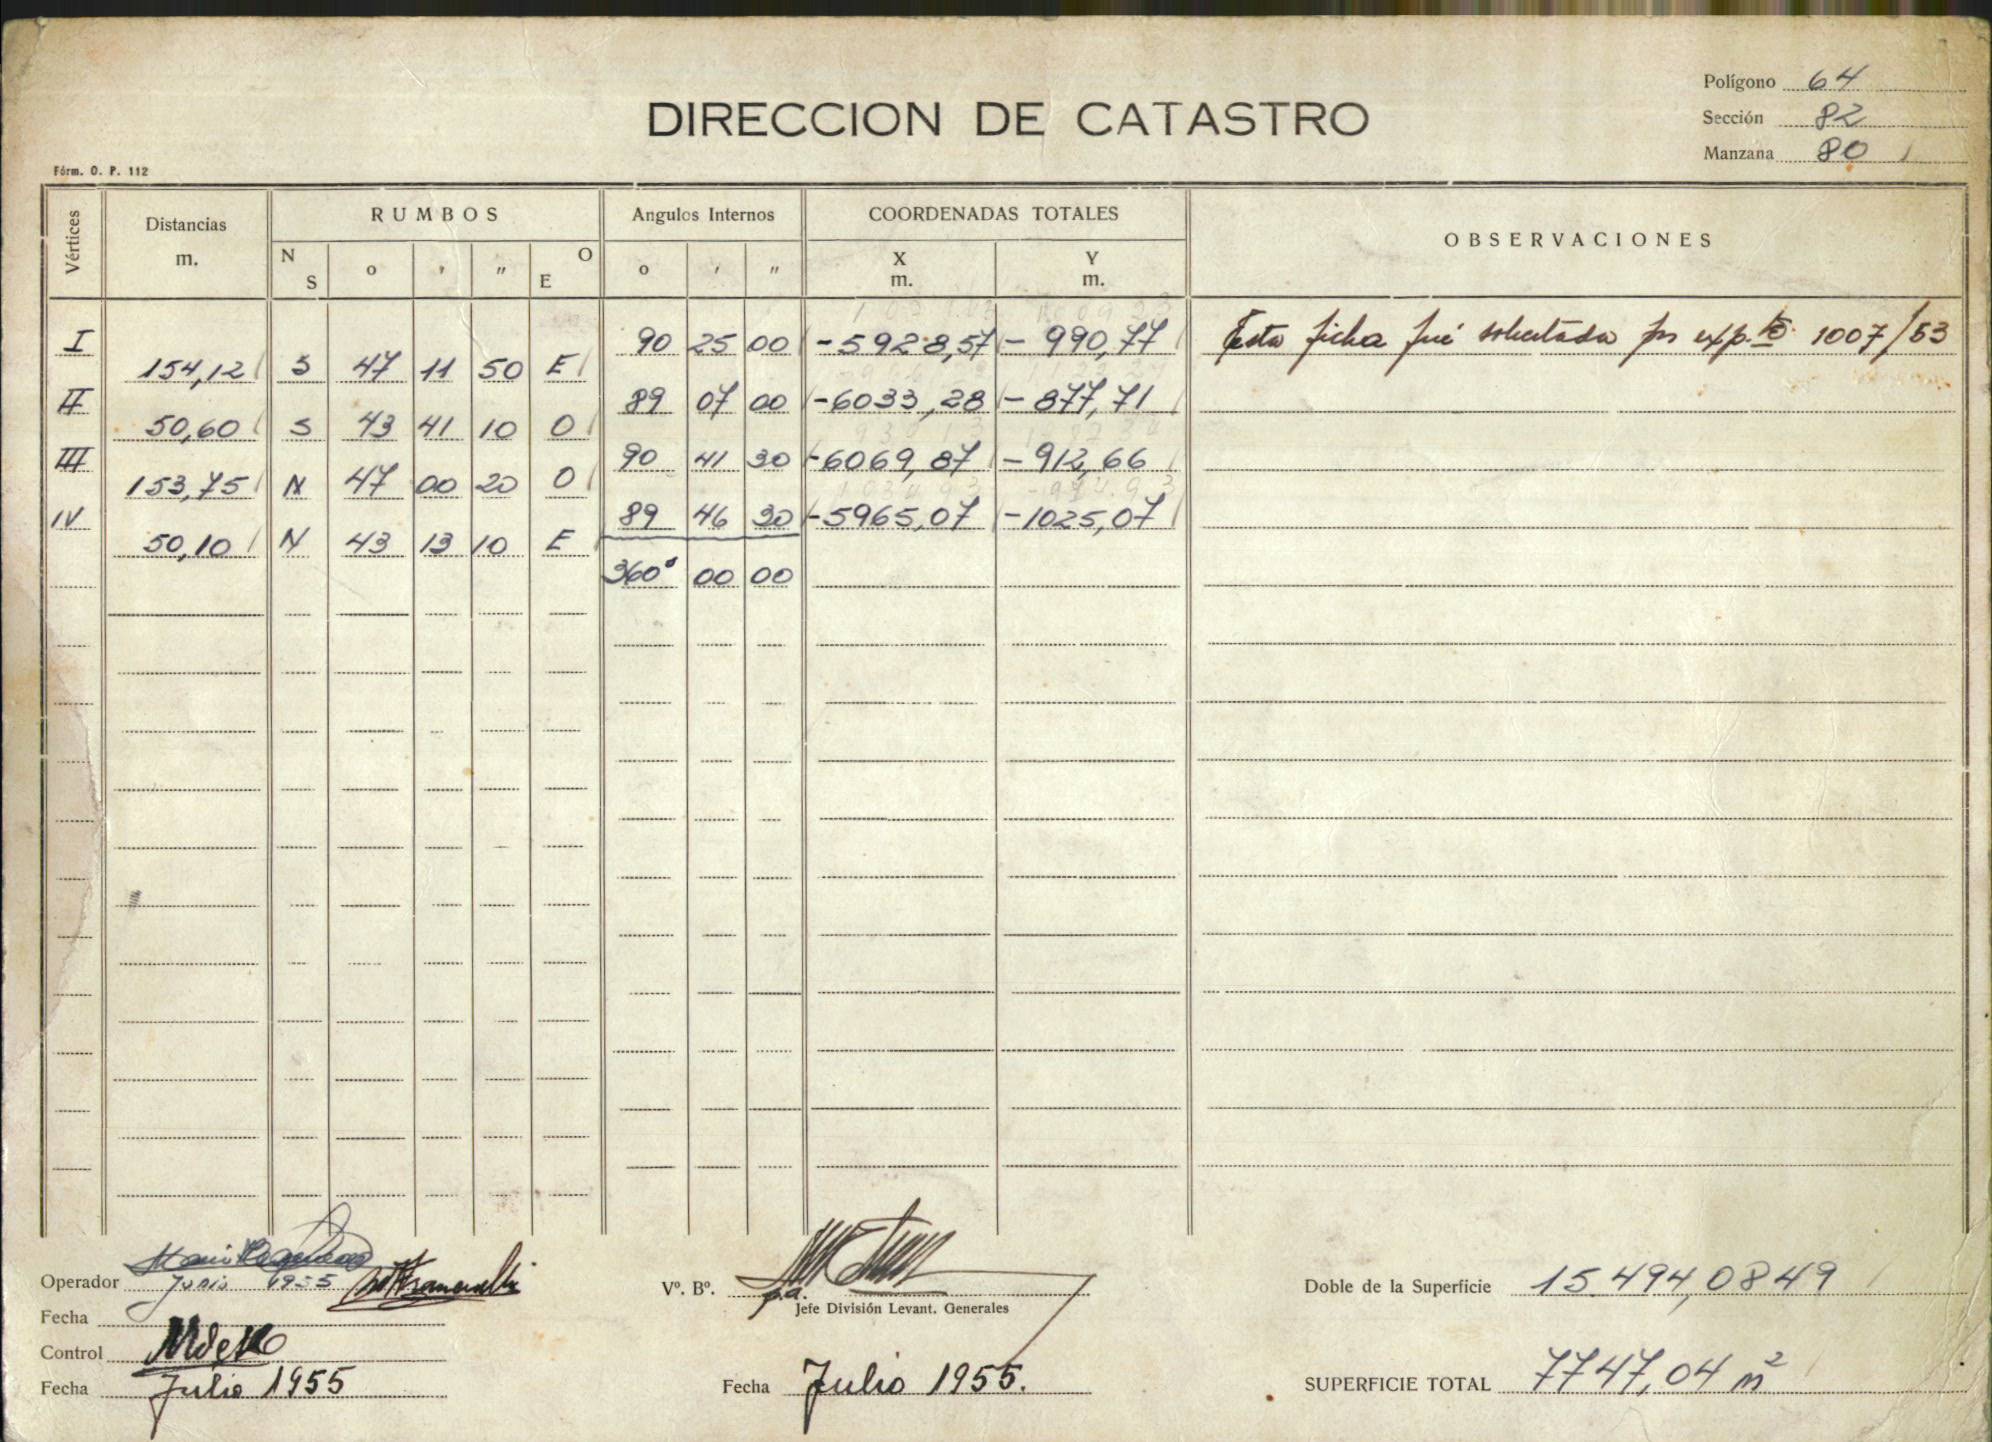 Polígono 64
DIRECCION DE CATASTRO
Sección 82
Manzana 80
Fórm. O. P. 112
Vértices Distancias m. RUMBOS N S o ' " E O Angulos Internos o ' " COORDENADAS TOTALES X m. Y m. OBSERVACIONES
I 90 25 00 -5928,57 - 990,77 Esta ficha fué solicitada por exp.te 1007/53
154,12 S 47 11 50 E
II 89 07 00 -6033,28 - 877,71
50,60 S 43 41 10 O
III 90 41 30 -6069,87 - 912,66
153,75 N 47 00 20 O
IV 89 46 30 -5965,07 -1025,07
50,10 N 43 13 10 E
360° 00 00
Operador
Junio 1955
Vº. Bº. p.a.
Jefe División Levant. Generales
Doble de la Superficie 15.494,0849
Fecha
Control
Fecha Julio 1955
Fecha Julio 1955.
SUPERFICIE TOTAL 7747,04 m²